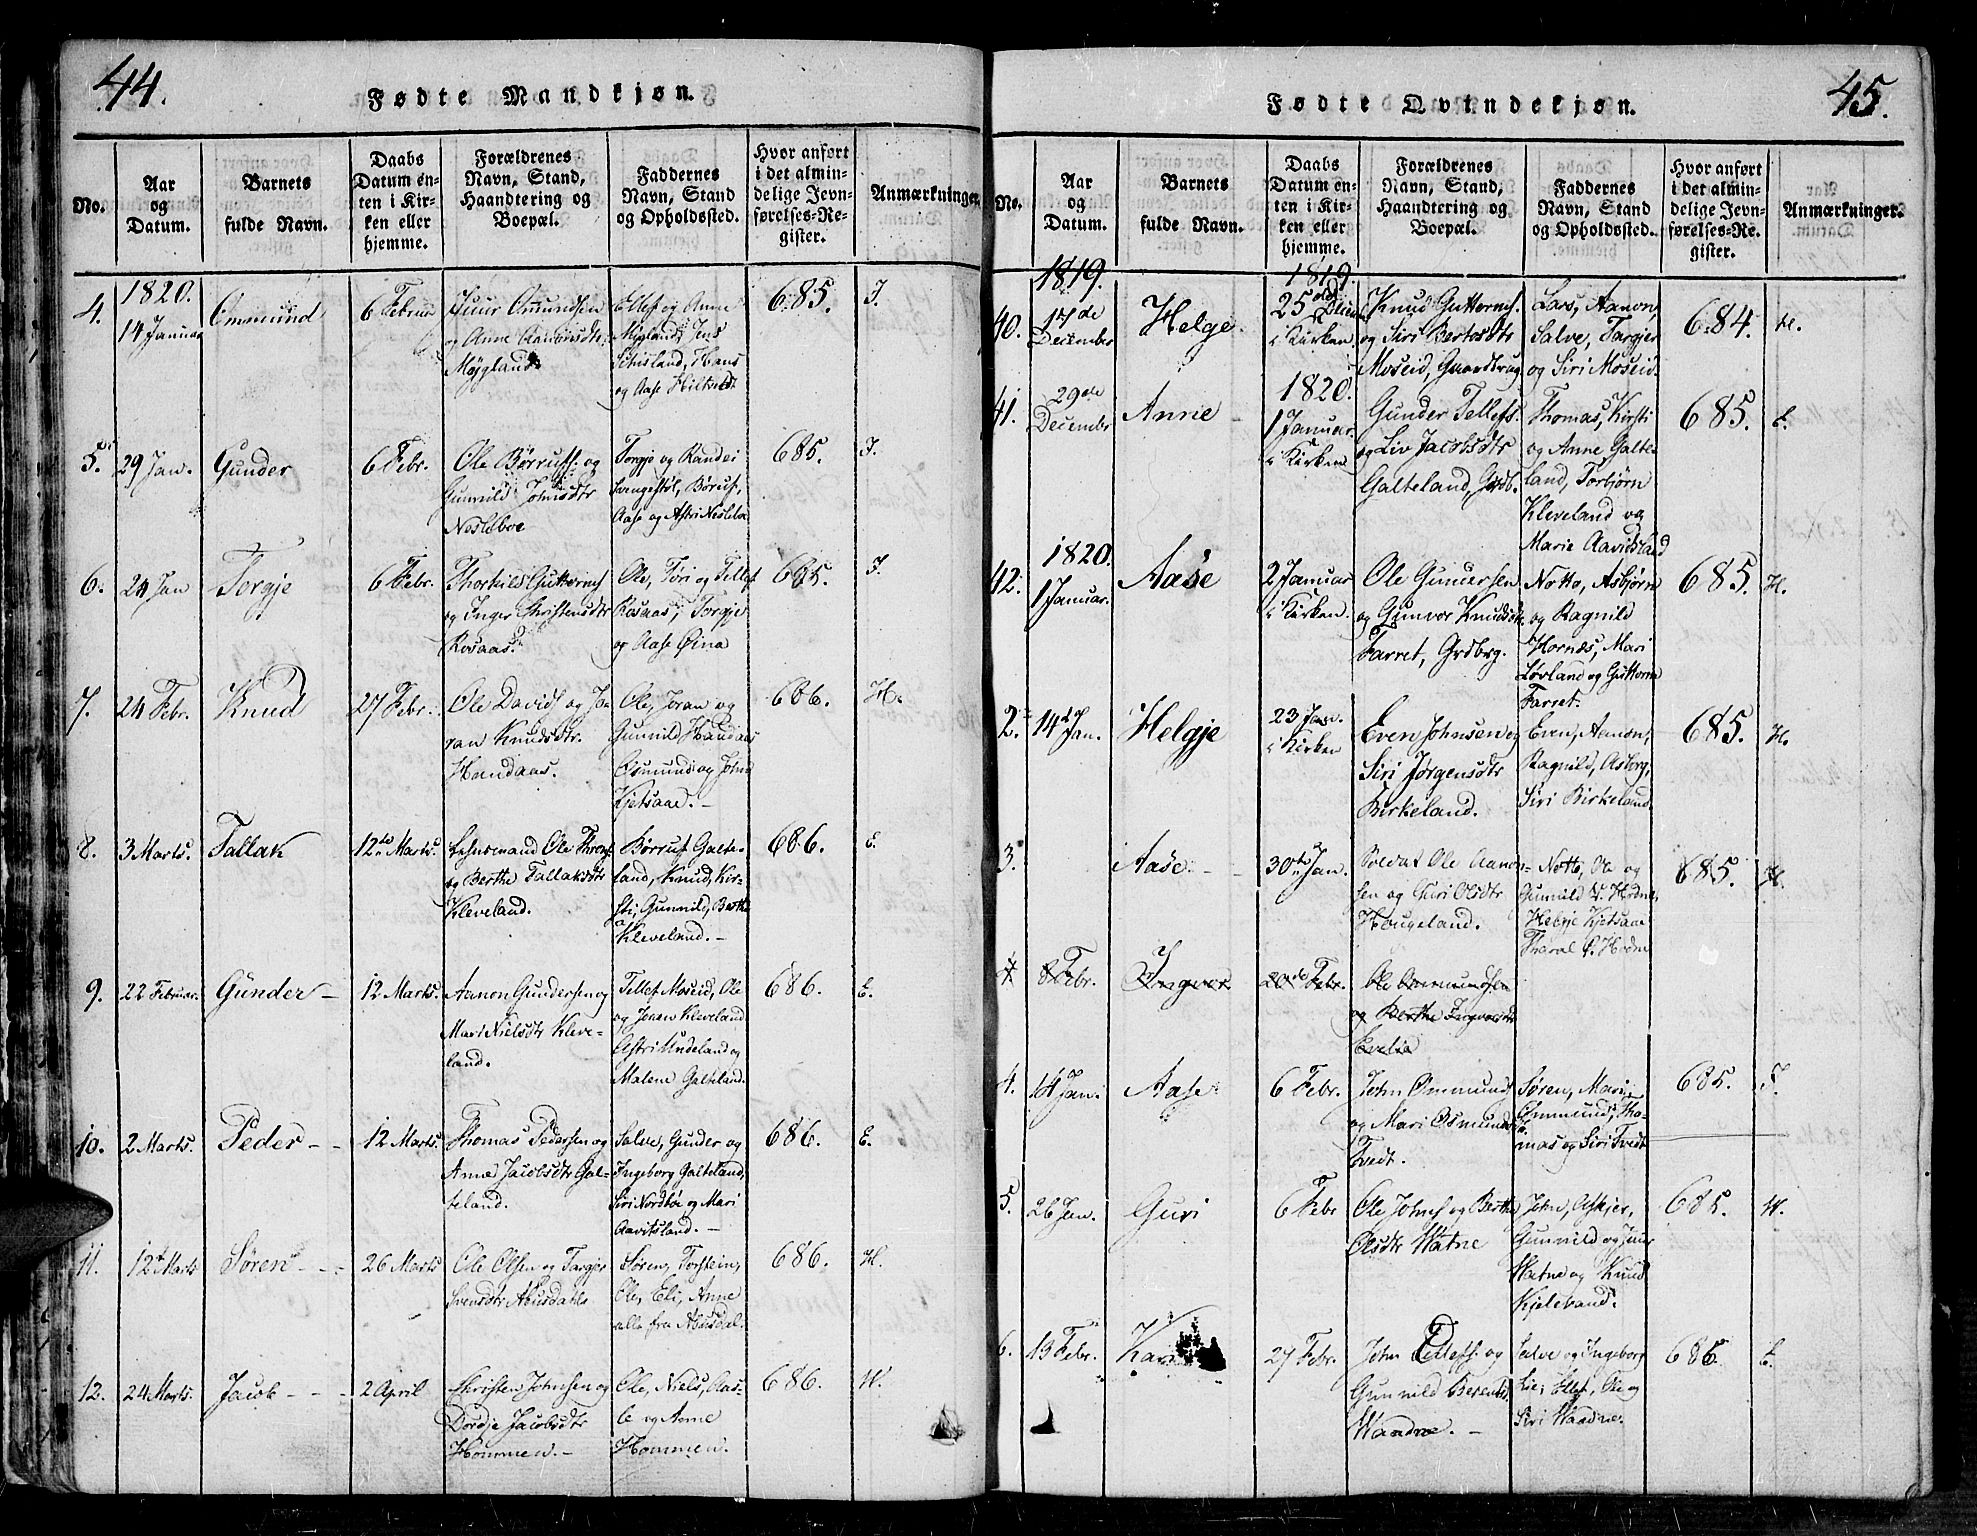 44.
Fødte Mandkjøn.
No.
Aar
og
Datum.
Barnets
fulde Navn.
Daabs
Datum en-
ten i Kir-
ken eller
hjemme.
Forældrenes
Navn, Stand,
Haandtering og
Boepæl.
Faddernes
Navn, Stand
og Opholdssted.
Hvor anført
i det almin-
delige Jevn-
førelses-Re-
gister.
Anmærkninger.
4.
1820.
14 Januar
Ommund
6 Februar
Juur Omundsen
og Anne
Møgland
Ellef og Anne
Møgland, Jens
Hans
og Aase
685.
I.
5.
29 Jan.
Gunder
6 Febr.
Ole Børrufs: og
Gunnild Johnsdtr
Neslebøe
Torgje og Randei
Svengestøl, Børuf,
Aase og Astri Neslebø
685.
I.
6.
24 Jan
Torgje
6 Febr.
Thorkild Guttorms
og Inger Christensdtr
Rosaas
Ole, Tori og Tellef
Rosaas, Torgje
og Aase Øina
685.
I.
7.
24 Febr.
Knud
27 Febr.
Ole Davids og Jo
ran Knudsdtr.
Handaas.
Ole, Joran og
Gunnild Handaas
Osmund og John
Kjetsaae.-
686.
H.
8.
3 Marts.
Tallak
12te Marts.
Lehnsmand Ole Thoms
og Berthe Tallaksdtr
Kleveland.
Børruf Galte-
land, Knud, Kir-
sti, Gunnild, Berthe
Kleveland.-
686.
E.
9.
22 Februar.
Gunder -
12 Marts.
Aanon Gundersen og
Mari Nielsdtr Kleve-
land.
Tellef Moseid, Ole
og Joran Kleveland
Astri Undeland og
Malene Galteland.
686.
E.
10.
2 Marts.
Peder - -
12 Marts.
Thomas Pedersen og
Anne Jacobsdtr Gal-
teland.
Salve, Gunder og
Ingeborg Galteland,
Siri Nordbøe og Mari
Aavitsland.-
686.
E.
11.
12t Marts
Søren - - -
26 Marts
Ole Olsen og Torgjer
Svensdtr Abusdahls
Søren, Torstein,
Ole, Eli, Anne
alle fra Abusdal.
686.
H.
12.
24 Marts.
Jacob - - -
2 April
Christen Johnsen og
Dordje Jacobsdtr
Hommen.-
Ole, Niels, Aas-
le og Anne
Hommen.
686.
W.
45.
Fødte Qvindekjøn.
No.
Aar
og
Datum.
Barnets
fulde Navn.
Daabs
Datum en-
ten i Kir-
ken eller
hjemme.
Forældrenes
Navn, Stand,
Haandtering og
Boepæl.
Faddernes
Navn, Stand
og Opholdssted.
Hvor anført
i det almin-
delige Jevn-
førelses-Re-
gister.
Anmærkninger.
40.
1819.
17de
December
Helge
1819.
25
i Kirken
Knud Guttorms.
og Siri Bertosdtr
Moseid,
Lars, Aanon,
Salve, Targjer
og Siri Moseid.
684.
H.
41.
29de
December
Anne -
1820.
1 Januar.
i Kirken
Gunder Tellefs.
og Liv Jacobsdtr
Galteland, Grdb.
Thomas, Kirsti
og Anne Galte-
land, Torbjørn
Kleveland og
Marie Aavidsland
685.
E.
42.
1820.
1 Januar.
Aase
2 Januar
i Kirken.
Ole Gundersen
og Gunvor Knudsdtr.
Farret, Grdbrg.
Notto, Asbjørn
og Ragnild
Hornæs, Mari
Løvland og Guttorm
Farret.
685.
H.
2.
14 Jan.
Helgje
23 Jan.
i Kirken
Even Johnsen og
Siri Jørgensdtr
Birkeland.
Even, Aanon,
Ragnild, Asborg,
Siri Birkeland.
685.
H.
3.
Aase. - -
30te Jan.
Soldat Ole Aanon-
sen og Turi Olsdtr
Hougeland.
Notto, Ole og
Gunnild V. Hodne,
Helgje Kjetsaae
Tharal Ø. Hodne
685.
H.
4
8 Febr.
Ingver
20de Febr.
Ole Ommundsen
og Berthe Ingversdtr
4.
14 Jan.
Aase
6 Febr.
John Ommunds
og Mari Osmundsd
Tvedt.
Søren, Mari
Ommund, Tho-
mas og Siri Tvedt
685.
I.
5.
26 Jan.
Guri
6 Febr
Ole Johns og Berthe
Olsdtr Watne
John, Askjer,
Gunnild og Juur
Watne og Knud
Kjelevand.
685.
W.
6.
13 Febr.
Kari
27 Febr.
John Tellefs. og
Gunnild Berentsd
Waadne.-
Salve og Ingeborg
Lie, Ellef, Ole og
Siri Waadne.
686.
E.